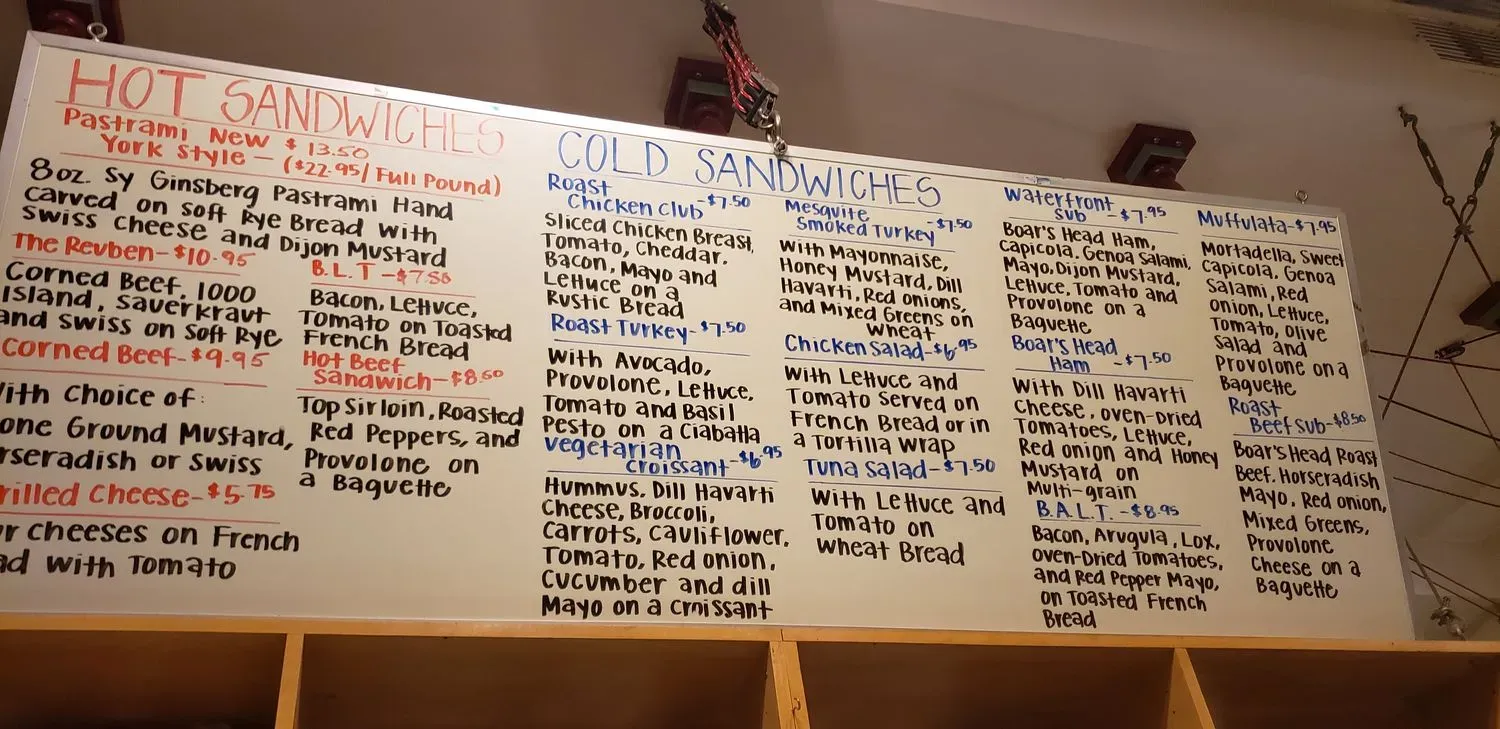 HOT SANDWICHES
Pastrami New $13.50
York Style — ($22.95/Full Pound)
8oz. Sy Ginsberg Pastrami Hand
Carved on Soft Rye Bread with
Swiss Cheese and Dijon Mustard
The Reuben- $10.95
Corned Beef, 1000
Island, Sauerkraut
and Swiss on Soft Rye
Corned Beef- $9.95
ith Choice of:
one Ground Mustard,
rseradish or Swiss
rilled Cheese- $5.75
r Cheeses on French
ad with Tomato
B.L.T -$7.50
Bacon, Lettuce,
Tomato on Toasted
French Bread
Hot Beef
Sandwich-$8.50
Top Sirloin, Roasted
Red Peppers, and
Provolone on
a Baguette
COLD SANDWICHES
Roast
Chicken Club -$7.50
Sliced Chicken Breast,
Tomato, Cheddar,
Bacon, Mayo and
Lettuce on a
Rustic Bread
Roast Turkey- $7.50
With Avocado,
Provolone, Lettuce,
Tomato and Basil
Pesto on a Ciabatta
Vegetarian
Croissant-$6.95
Hummus, Dill Havarti
Cheese, Broccoli,
Carrots, Cauliflower,
Tomato, Red onion,
Cucumber and dill
Mayo on a Croissant
Mesquite
Smoked Turkey -$7.50
With Mayonnaise,
Honey Mustard, Dill
Havarti, Red onions,
and Mixed Greens on
Wheat
Chicken Salad-$6.95
With Lettuce and
Tomato Served on
French Bread or in
a Tortilla Wrap
Tuna Salad-$7.50
With Lettuce and
Tomato on
Wheat Bread
Waterfront
Sub -$7.95
Boar's Head Ham,
Capicola, Genoa Salami,
Mayo, Dijon Mustard,
Lettuce, Tomato and
Provolone on a
Baguette
Boar's Head
Ham -$7.50
With Dill Havarti
Cheese, oven-Dried
Tomatoes, Lettuce,
Red onion and Honey
Mustard on
Multi-grain
B.A.L.T. -$8.95
Bacon, Arugula, Lox,
oven-Dried Tomatoes,
and Red Pepper Mayo,
on Toasted French
Bread
Muffulata-$7.95
Mortadella, Sweet
Capicola, Genoa
Salami, Red
onion, Lettuce,
Tomato, Olive
Salad and
Provolone on a
Baguette
Roast
Beef Sub-$8.50
Boar's Head Roast
Beef, Horseradish
Mayo, Red onion,
Mixed Greens,
Provolone
Cheese on a
Baguette